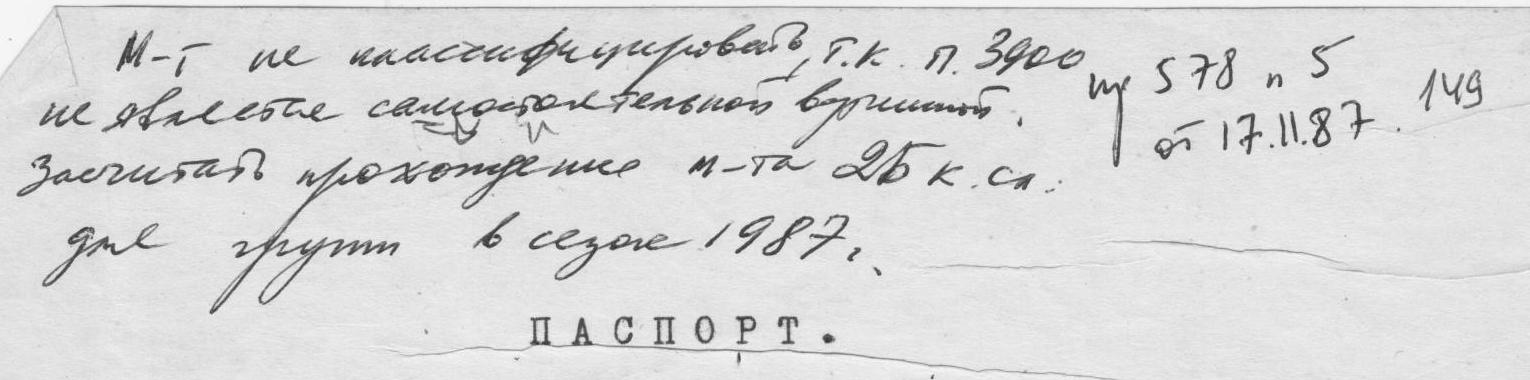 М-т не классифицировать, т.к. п. 3900
не является самостоятельной вершиной.
Засчитать прохождение м-та 2Б к.сл.
для групп в сезоне 1987 г.
пр 578 п 5
от 17.11.87. 149
ПАСПОРТ.